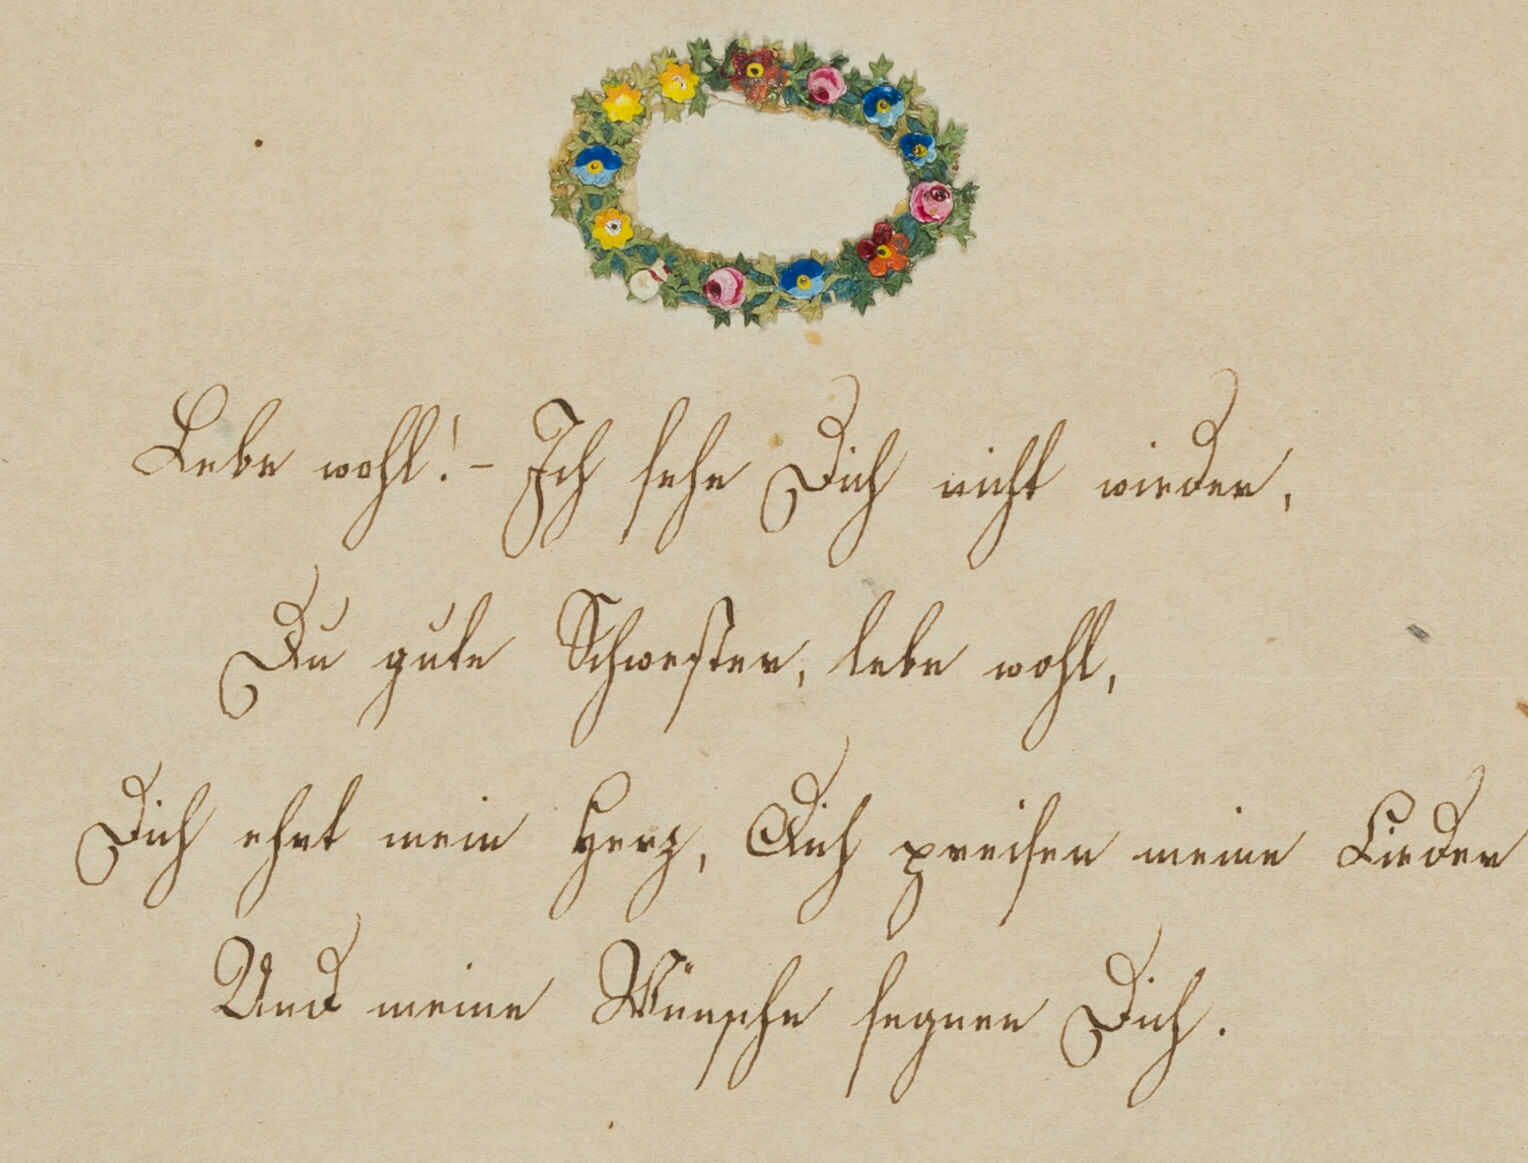 Lebe wohl! – Ich sehe Dich nicht wieder,
Du gute Schwester, lebe wohl,
Dich ehrt mein Herz, Dich preisen meine Lieder
Und meine Wünsche segnen Dich.